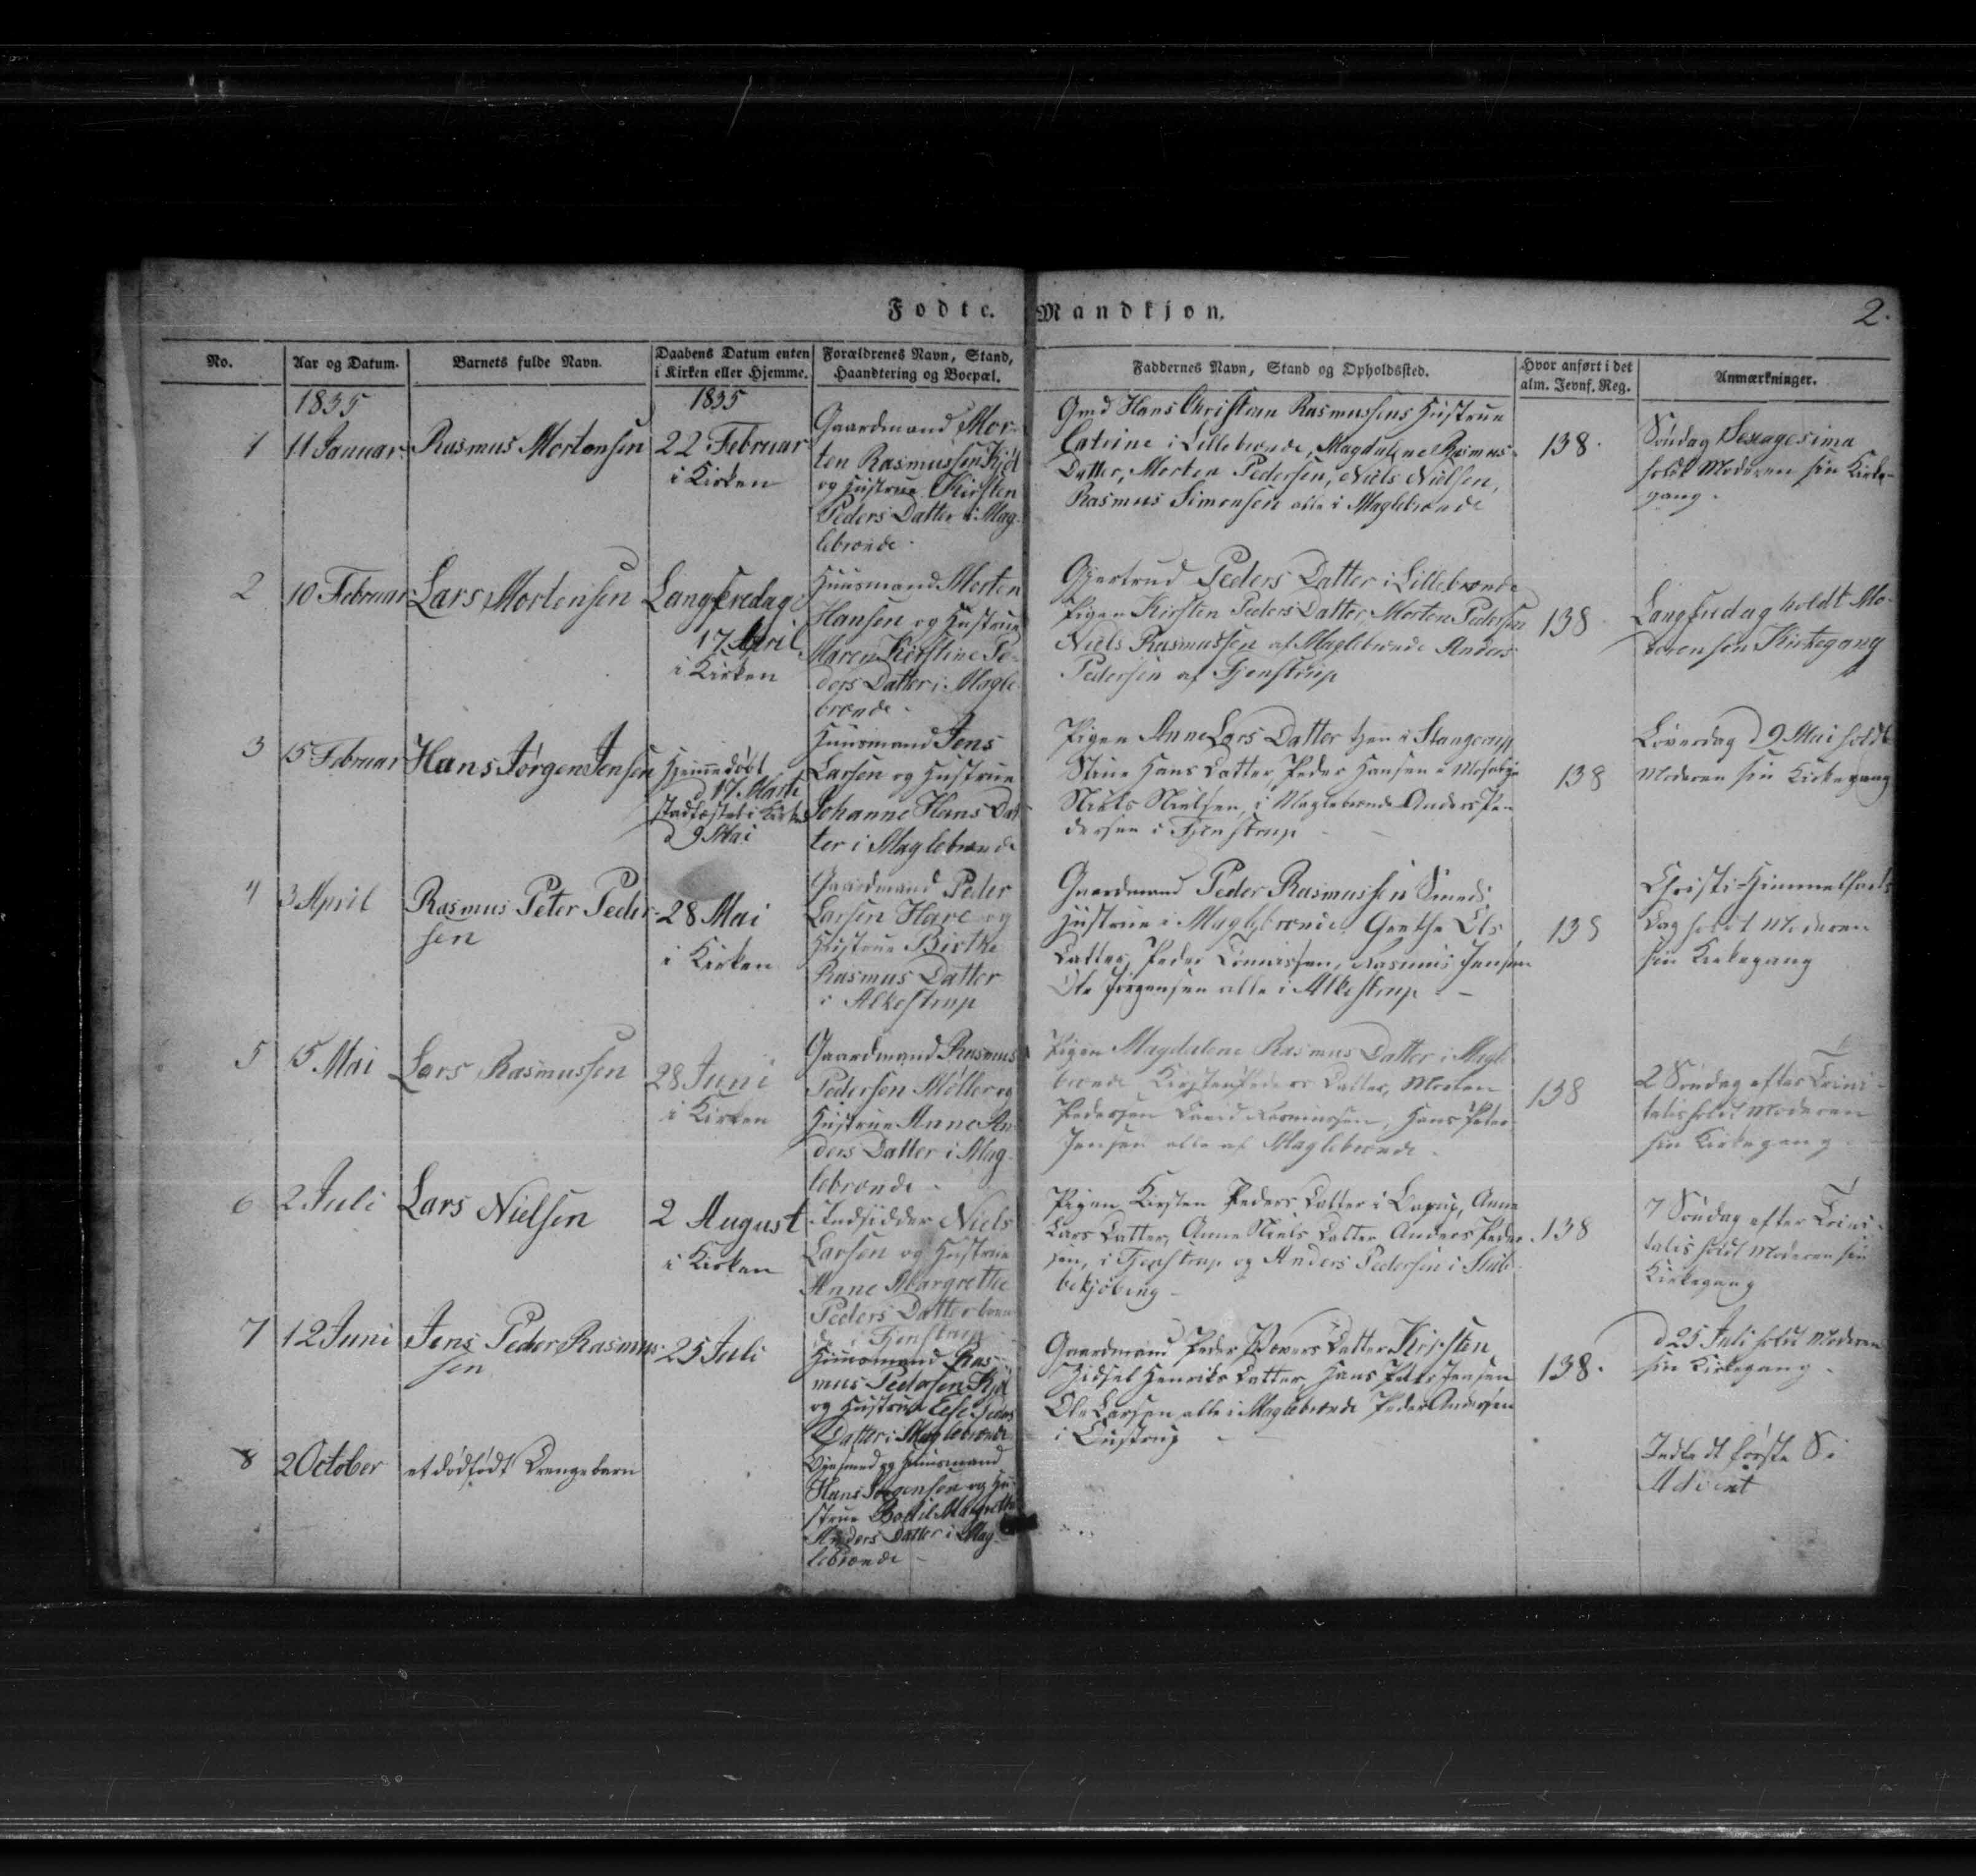 Fødte. Mandkjøn.
2.
No.
Aar og Datum.
Barnets fulde Navn.
Daabens Datum enten
i Kirken eller Hjemme.
Forældrenes Navn, Stand,
Haandtering og Boepæl.
Faddernes Navn, Stand og Opholdssted.
Hvor anført i det
alm. Jevnf. Reg.
Anmærkninger.
1835
1835
1
11 Januar
Rasmus Mortensen
22 Februar
i Kirken
Gaardmand Mor-
ten Rasmussen Kjød
og Hustrue Kirsten
Peders Datter i Mag-
lebrænde
Gmd Hans Christian Rasmussens Hustrue
Catrine i Lillebrænde, Magdalene Rasmus
Datter, Morten Pedersen, Niels Nielsen,
Rasmus Simonsen alle i Maglebrænde
138.
Søndag Sexagesima
holdt Moderen sin Kirke-
gang.
2
10 Februar
Lars Mortensen
Langfredag
17 April
i Kirken
Huusmand Morten
Hansen og Hustrue
Maren Kirstine Pe-
ders Datter i Magle-
brænde
Gjertrud Peders Datter i Lillebrænde
Pigen Kirsten Peders Datter, Morten Pedersen
Niels Rasmussen af Maglebrænde Anders
Pedersen af Tjenstrup
138
Langfredag holdt Mo-
deren sin Kirkegang
3
15 Februar
Hans Jørgen Jensen
Hjemmedøbt
d 17 Marts
stadfæstet i Kirken
d 9 Mai
Huusmand Jens
Larsen og Hustrue
Johanne Hans Dat-
ter i Maglebrænde
Pigen Anne Lars Datter tjen i Stangerup
Stine Hans Datter, Peder Hansen i
Niels Nielsen, i Maglebrænde Anders Pe-
dersen i Tjenstrup
138
Løverdag d 9 Mai holdt
Moderen sin Kirkegang
4
3 April
Rasmus Peter Peder-
sen
28 Mai
i Kirken
Gaardmand Peder
Larsen Hare og
Hustrue Birthe
Rasmus Datter
i Alkestrup
Gaardmand Peder Rasmussen Smeds
Hustrue i Maglebrænde Grethe Ols
Datter, Peder Rasmus Jensen
Ole Jørgensen alle i Alkestrup
138
Christi Himmelfarts
Dag holdt Moderen
sin Kirkegang
5
15 Mai
Lars Rasmussen
28 Juni
i Kirken
Gaardmand Rasmus
Pedersen Møller og
Hustrue Anne An-
ders Datter i Mag-
lebrænde
Pigen Magdalene Rasmus Datter i Magle
brænde Kirsten Peders Datter, Morten
Pedersen Rasmussen, Hans Peter
Jensen alle af Maglebrænde
138
2 Søndag efter Trini-
tatis holdt Moderen
sin Kirkegang
6
2 Juli
Lars Nielsen
2 August
i Kirken
Indsidder Niels
Larsen og Hustrue
Anne Margrethe
Peders Datter
i Tjenstrup
Pigen Kirsten Peders Datter i Anne
Lars Datter, Anne Niels Datter Anders Peder-
sen, i Tjenstrup og Anders Pedersen i Stub-
bekjøbing
138
7 Søndag efter Trini-
tatis holdt Moderen sin
Kirkegang
7
12 Juni
Jens Peder Rasmus-
sen
25 Juli
Huusmand Ras-
mus Pedersen Kjød
og Hustrue
Datter i Maglebrænde
Gaardmand Peder Datter Kirsten
Sidsel Henriks Datter, Hans Peter Jensen
Ole Larsen alle i Maglebrænde Peder Andersen
i
138.
d 25 Juli holdt Moderen
sin Kirkegang
8
2 October
et dødfødt Drengebarn
og Huusmand
Hans Jørgensen og Hu-
strue Bodil Margrethe
Anders Datter i Mag-
lebrænde
Indledt første S. i
Advent